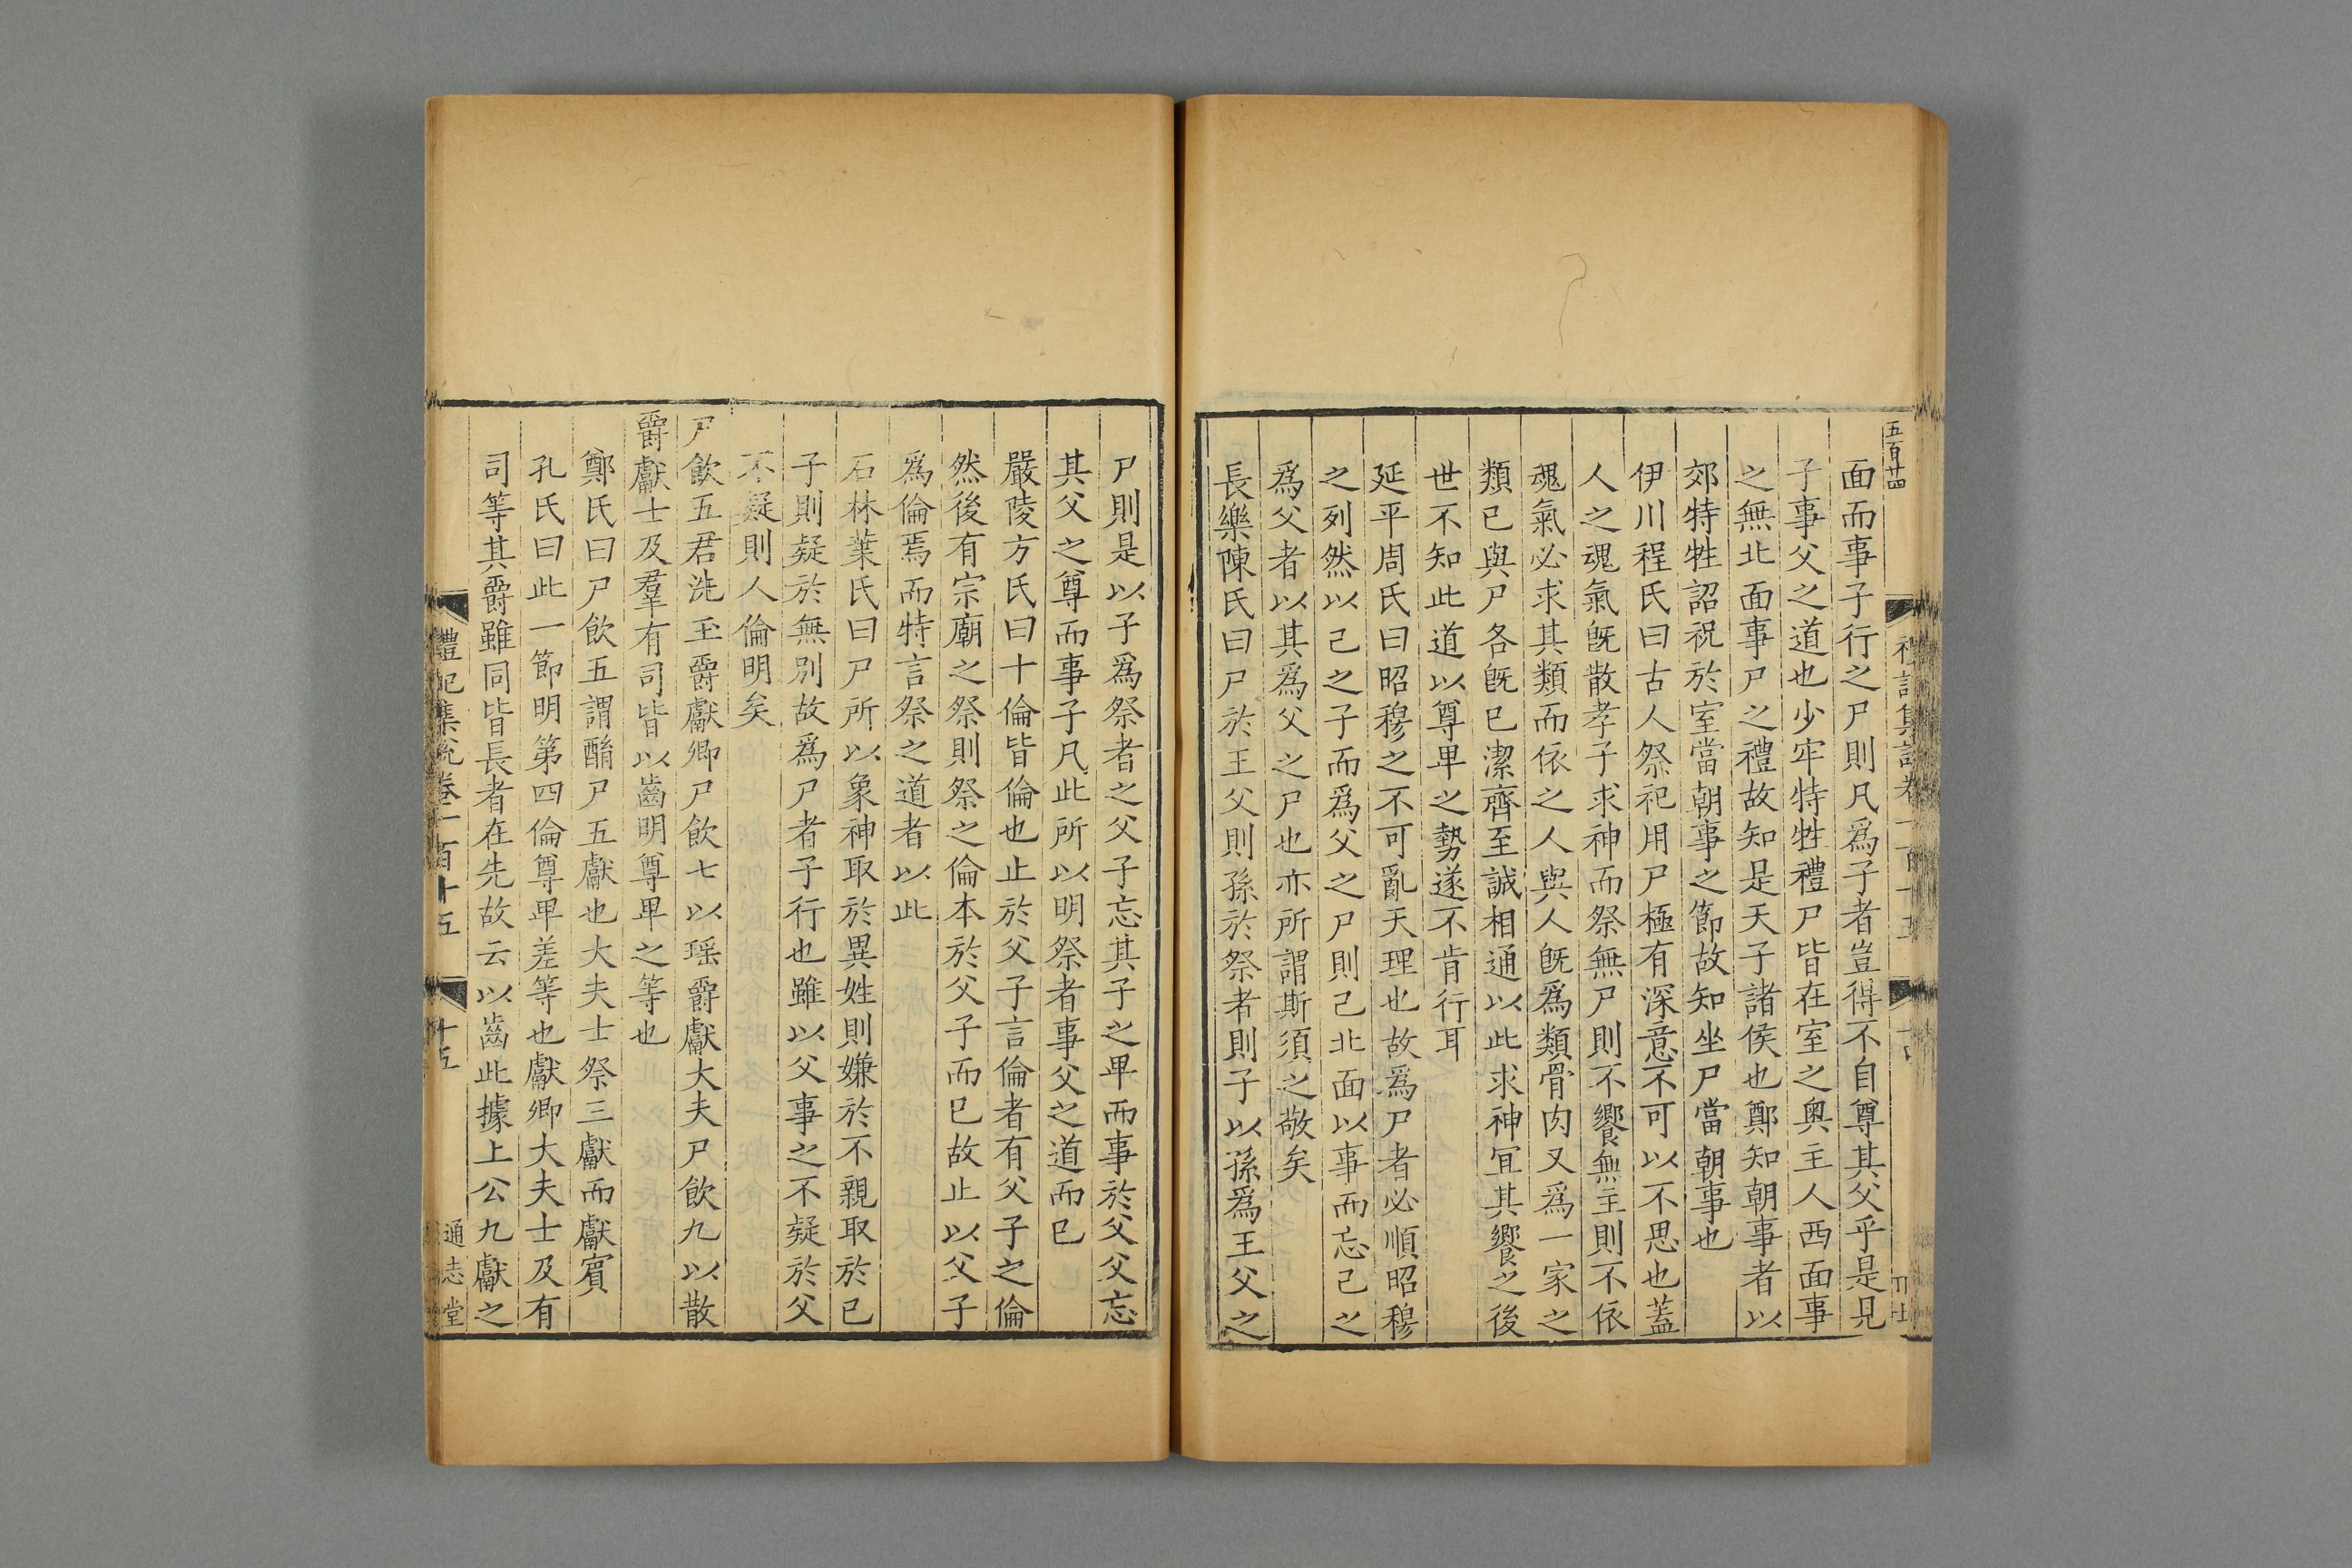 五百廿四
面而事子行之尸則凡爲子者豈得不自尊其父乎是見
子事父之道也少牢特牲禮尸皆在室之奧主人西面事
之無北面事尸之禮故知是天子諸侯也鄭知朝事者以
郊特牲詔祝於室當朝事之節故知坐尸當朝事也
伊川程氏曰古人祭祀用尸極有深意不可以不思也蓋
人之魂氣旣散孝子求神而祭無尸則不饗無主則不依
魂氣必求其類而依之人與人旣爲類骨肉又爲一家之
類已與尸各旣已潔齊至誠相通以此求神冝其饗之後
世不知此道以尊卑之勢遂不肯行耳
延平周氏曰昭穆之不可亂天理也故爲尸者必順昭穆
之列然以己之子而爲父之尸則己北面以事而忘己之
爲父者以其爲父之尸也亦所謂斯須之敬矣
長樂陳氏曰尸於王父則孫於祭者則子以孫爲王父之
尸則是以子爲祭者之父子忘其子之卑而事於父父忘
其父之尊而事子凡此所以明祭者事父之道而已
嚴陵方氏曰十倫皆倫也止於父子言倫者有父子之倫
然後有宗廟之祭則祭之倫本於父子而已故止以父子
爲倫焉而特言祭之道者以此
石林葉氏曰尸所以象神取於異姓則嫌於不親取於已
子則疑於無別故爲尸者子行也雖以父事之不疑於父
不疑則人倫明矣
尸飲五君洗玉爵獻卿尸飲七以瑶爵獻大夫尸飲九以散
爵獻士及羣有司皆以齒明尊卑之等也
鄭氏曰尸飲五謂酳尸五獻也大夫士祭三獻而獻賓
孔氏曰此一節明第四倫尊卑差等也獻卿大夫士及有
司等其爵雖同皆長者在先故云以齒此據上公九獻之
禮記集說卷一百十五
十五
通志堂